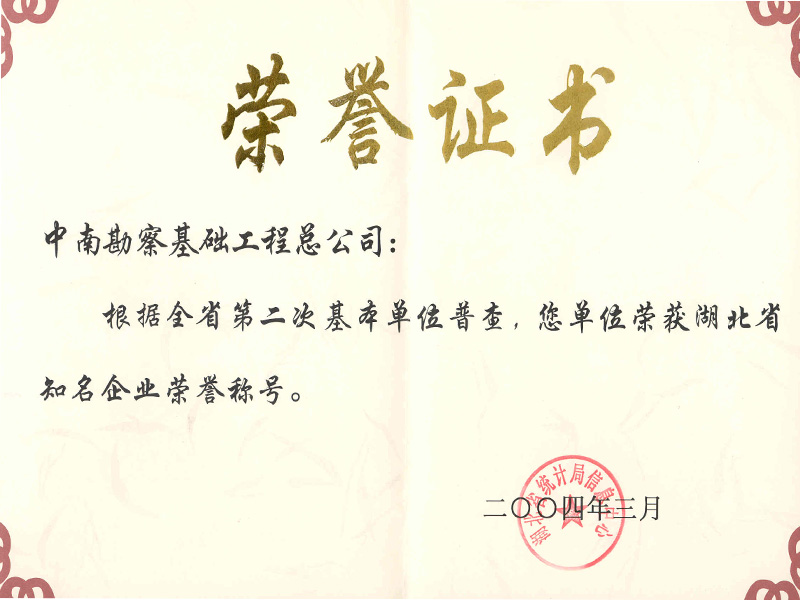 荣誉证书
中南勘察基础工程总公司：
根据全省第二次基本单位普查，您单位荣获湖北省
知名企业荣誉称号。
湖北省统计局信息中心
二〇〇四年三月